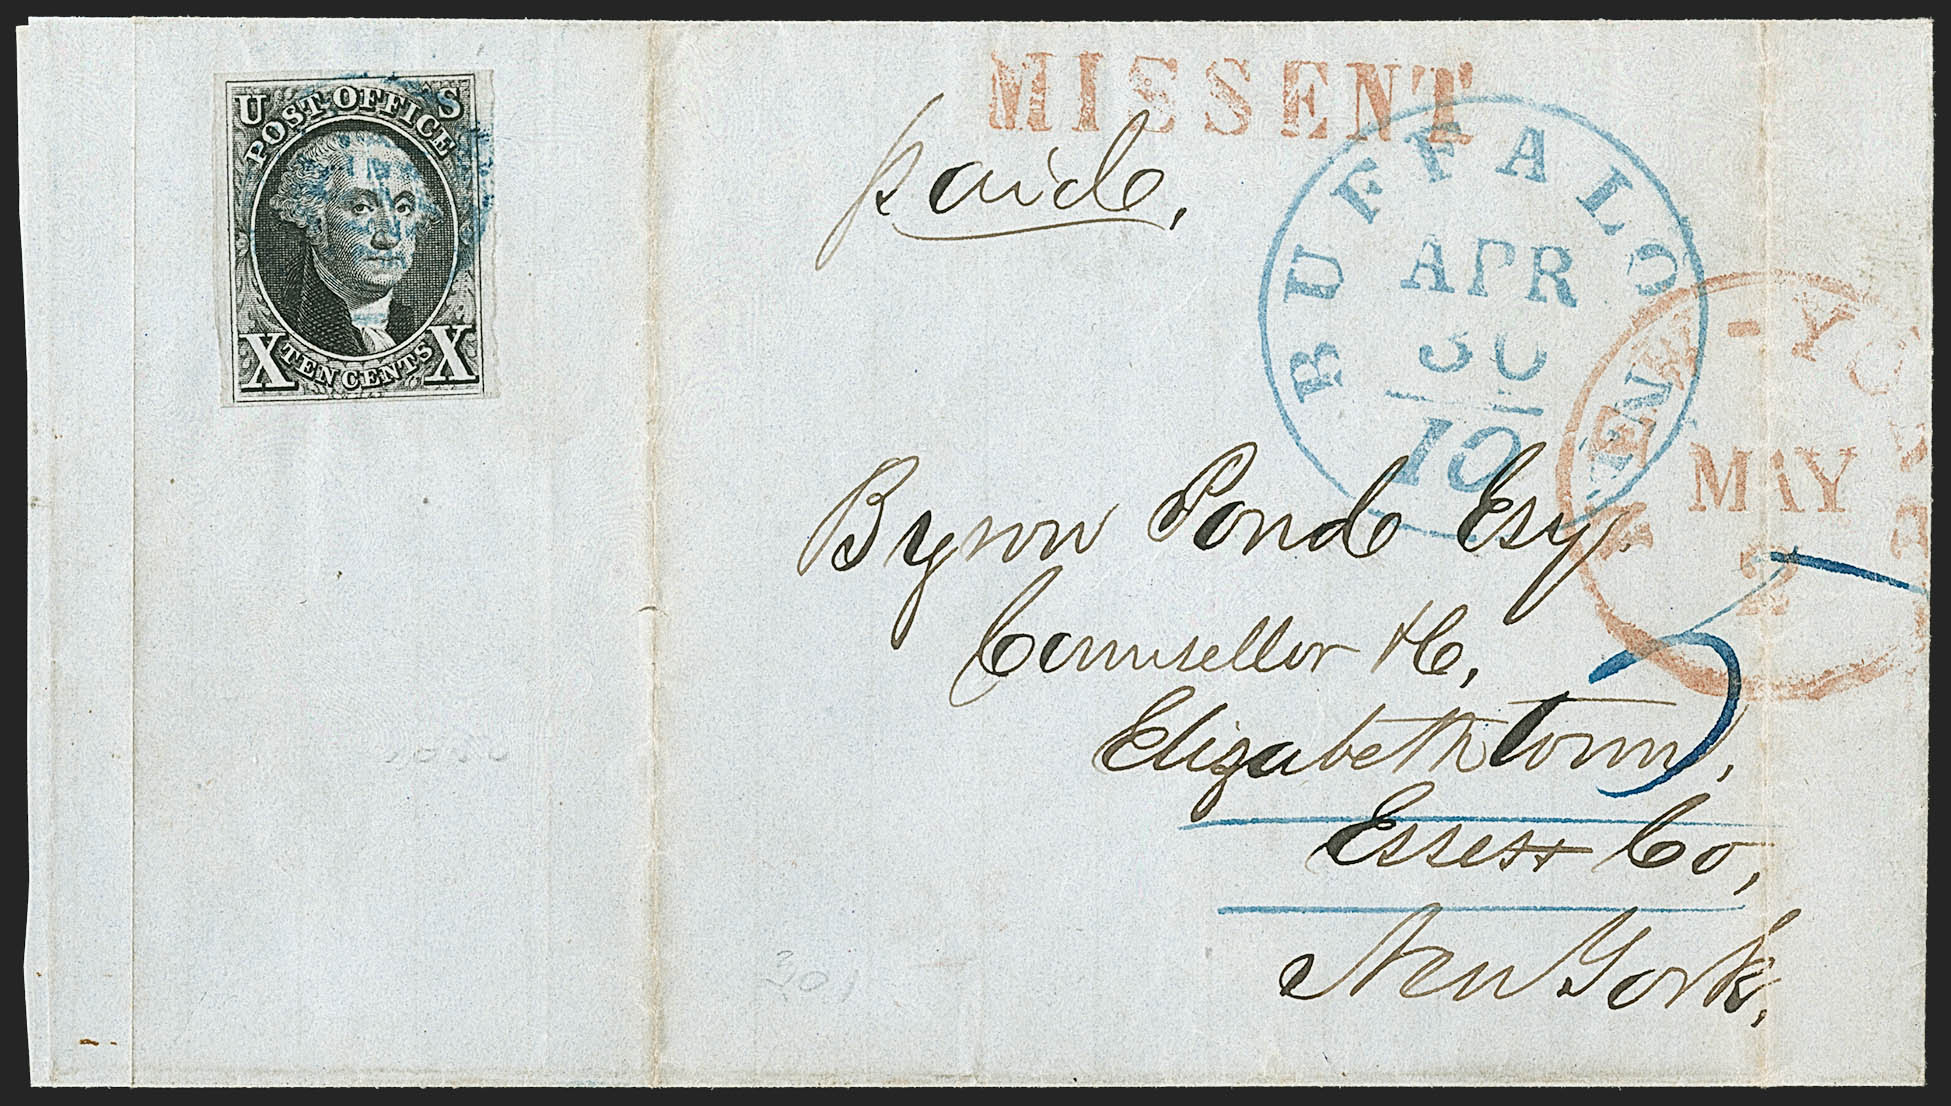 U S
POST OFFICE
X TEN CENTS X
MISSENT
paid,
BUFFALO N.Y.
APR
30
10
NEW-YO
MAY
2
5
Byron Pond Esq.
Counsellor &c,
Elizabethtown,
Essex Co,
New York,